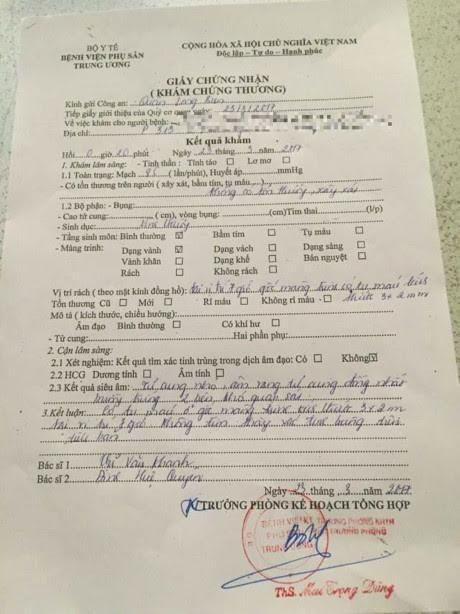 BỘ Y TẾ
BỆNH VIỆN PHỤ SẢN
TRUNG ƯƠNG
CỘNG HÒA XÃ HỘI CHỦ NGHĨA VIỆT NAM
Độc lập – Tự do – Hạnh phúc
GIẤY CHỨNG NHẬN
( KHÁM CHỨNG THƯƠNG)
Kính gửi Công an: Quận Long Biên
Tiếp giấy giới thiệu của Quý cơ quan ngày 23/3/2017
Về việc khám cho người bệnh:
Địa chỉ: P 313
Kết quả khám
Hồi 0 giờ 20 phút Ngày 23 tháng 3 năm 2017
1. Khám lâm sàng: - Tinh thần: Tỉnh táo Lơ mơ
1.1 Toàn trạng: Mạch 85 (lần/phút), Huyết áp mmHg
- Có tổn thương trên người ( xây xát, bầm tím, tụ máu )
không có tổn thương, xây xát
1.2 Bộ phận: - Bụng:
- Cao tử cung: ( cm), vòng bụng: (cm)Tim thai (l/p)
- Sinh dục:
- Tầng sinh môn: Bình thường Bầm tím Tụ máu
- Màng trinh: Dạng vành Dạng vách Dạng sàng
Vành khăn Dạng khế Bán nguyệt
Rách Không rách
Vị trí rách ( theo mặt kính đồng hồ): tại vị trí 7 giờ gốc màng trinh có tụ máu kích
Tổn thương Cũ Mới Rỉ máu Không rỉ máu thước 3x2mm
Mô tả ( kích thước, chiều hướng):
Âm đạo Bình thường Có khí hư
- Tử cung: Hai phần phụ:
2. Cận lâm sàng:
2.1 Xét nghiệm: Kết quả tìm xác tinh trùng trong dịch âm đạo: Có Không
2.2 HCG Dương tính Âm tính
2.3 Kết quả siêu âm: Tử cung âm vang tử cung đồng nhất
buồng trứng 2 bên khó quan sát
3.Kết luận: Có tụ máu ở gốc màng trinh kích thước 3x2m
tại vị trí 7 giờ. Không tìm thấy xác tinh trùng trên
tiêu bản
Bác sĩ 1 Vũ Văn Khanh
Bác sĩ 2 Đinh Huệ Quyên
Ngày 23 tháng 3 năm 2017
TRƯỞNG PHÒNG KẾ HOẠCH TỔNG HỢP
BỆNH VIỆN
TRUNG ƯƠNG
PHÓ TRƯỞNG PHÒNG
ThS. Mai Trọng Dũng